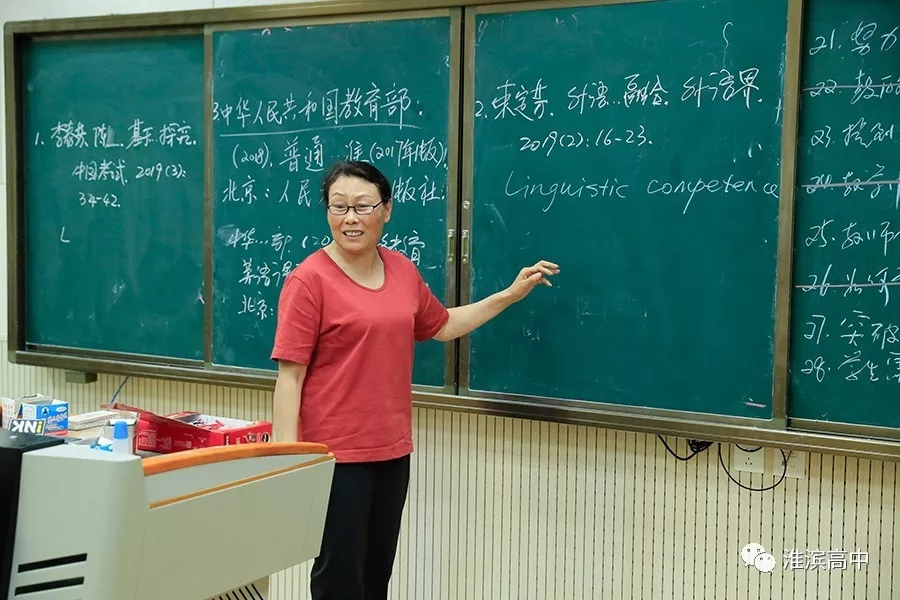 1. 李春芳, 陈…, 基于…探究.
中国考试. 2019(3):
34-42.
3 中华人民共和国教育部.
(2018). 普通…准(2017年版).
北京: 人民…版社.
中华…部. (20
英语课
北京:
2. 束定芳. 外语…融合. 外语界.
2019(2): 16-23.
Linguistic competence
21. 努力
22. 教师
23.
24. 教育
25. 教师
26.
27. 突破
28. 学生
INK
淮滨高中